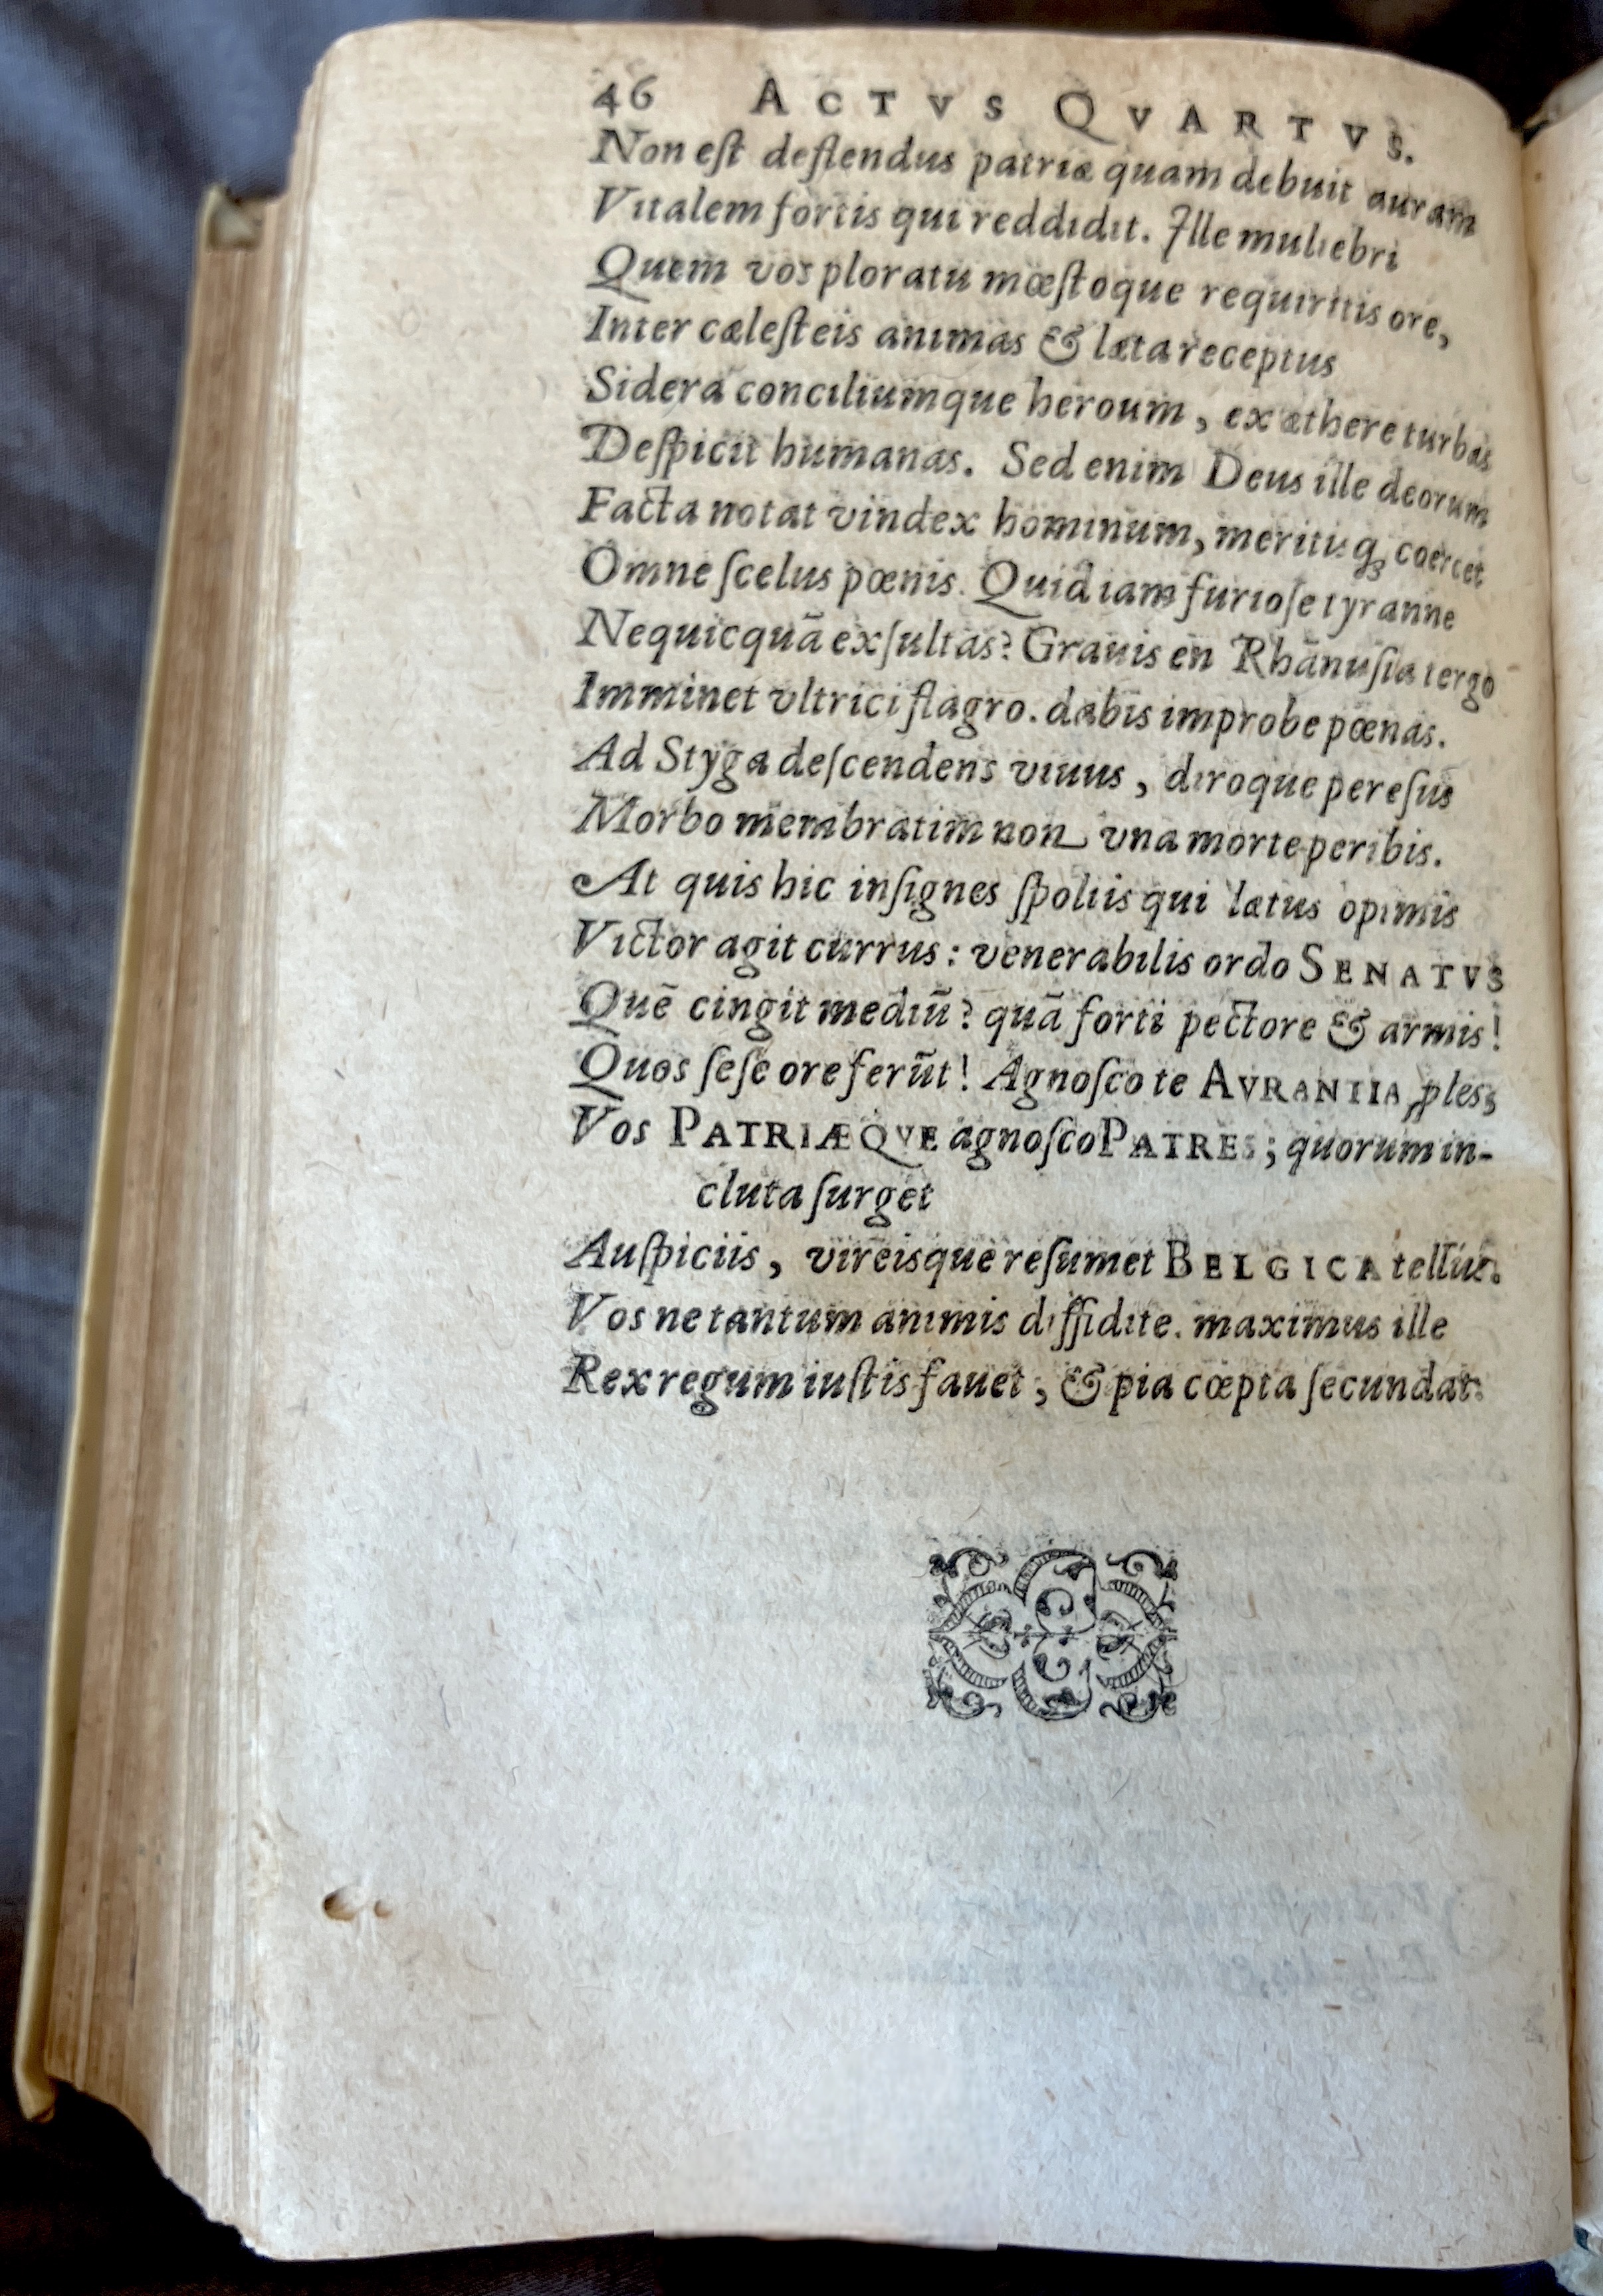 46 ACTVS QVARTVS.
Non eſt deflendus patriæ quam debuit auram
Vitalem fortis qui reddidit. Ille muliebri
Quem vos ploratu mœſtoque requiritis ore,
Inter cæleſteis animas & læta receptus
Sidera conciliumque heroum, ex æthere turbas
Deſpicit humanas. Sed enim Deus ille deorum
Facta notat vindex hominum, meritisq; coercet
Omne ſcelus pœnis. Quid iam furioſe tyranne
Nequicquã exſultas? Grauis en Rhãnuſia tergo
Imminet vltrici flagro. dabis improbe pœnas.
Ad Styga deſcendens viuus, diroque pereſus
Morbo membratim non vna morte peribis.
At quis hic inſignes ſpoliis qui lætus opimis
Victor agit currus: venerabilis ordo SENATVS
Quẽ cingit mediũ? quã forti pectore & armis!
Quos ſeſe ore ferũt! Agnoſco te AVRANTIA ꝓles,
Vos PATRIÆQVE agnoſco PATRES; quorum in-
cluta ſurget
Auſpiciis, vireisque reſumet BELGICA tellus.
Vos ne tantum animis diffidite. maximus ille
Rex regum iuſtis fauet, & pia cœpta ſecundat.